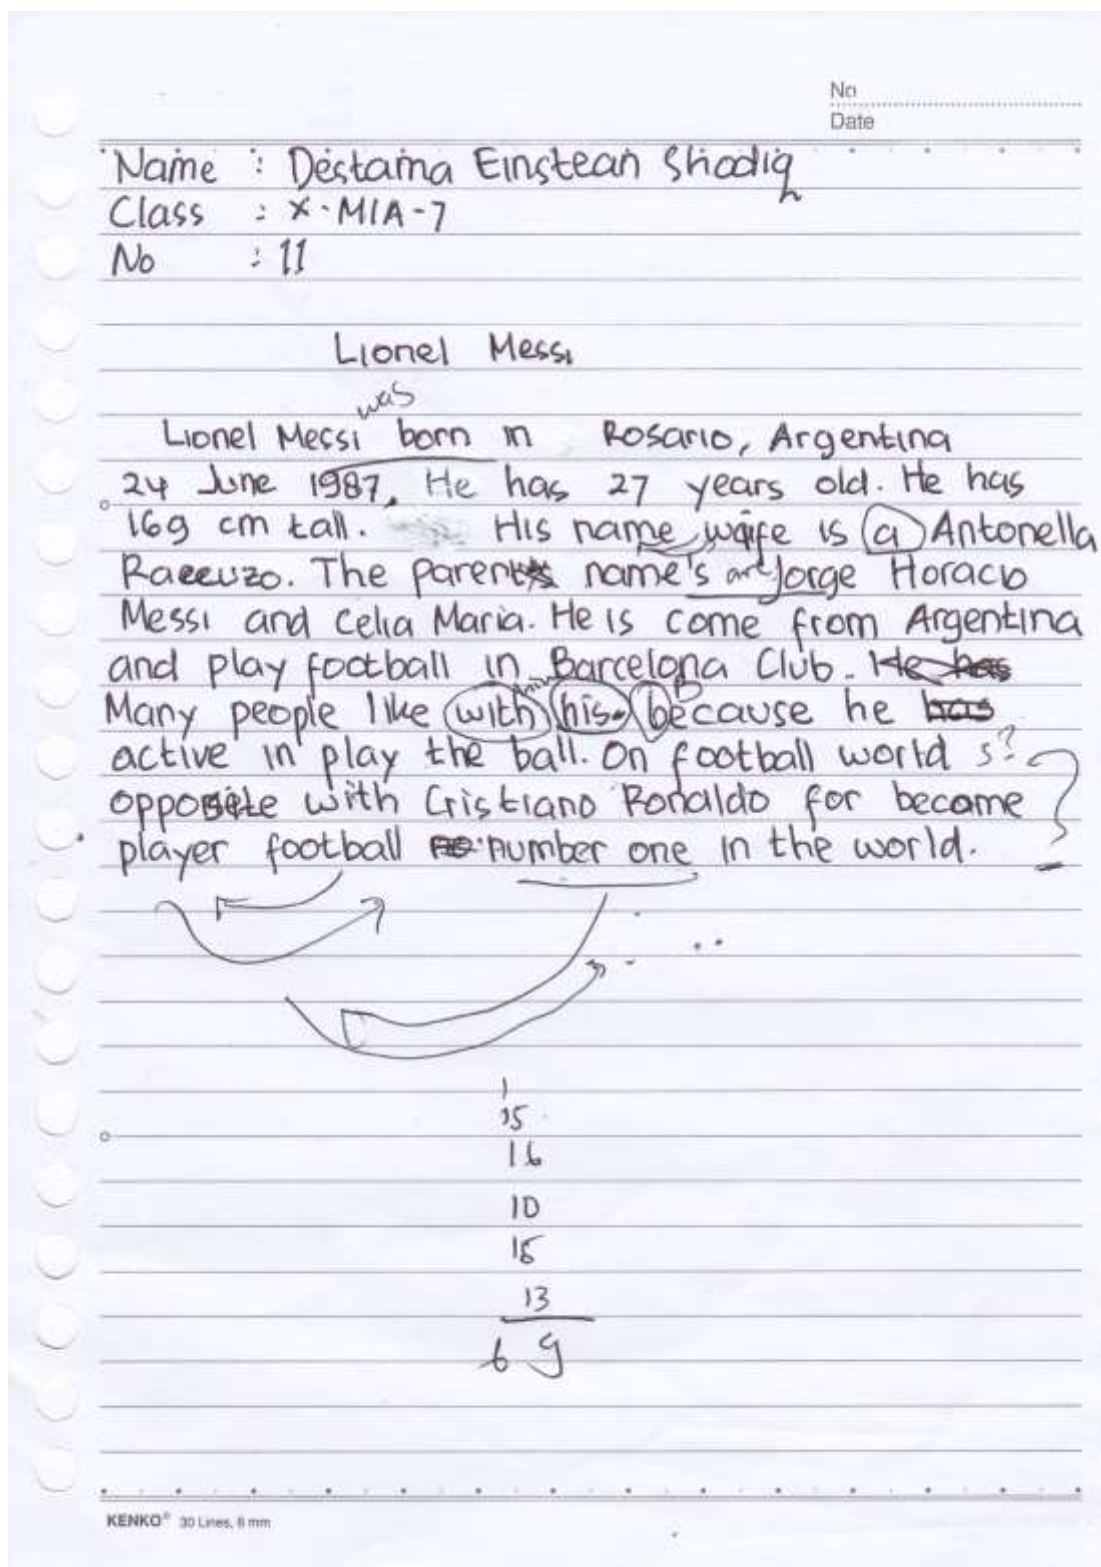 No
Date
Name : Destama Einstean Shodiq
Class : X-MIA-7
No : 11
Lionel Messi
was
Lionel Messi born in Rosario, Argentina
24 June 1987. He has 27 years old. He has
169 cm tall. His name waife is a Antonella
Raccuzo. The parent name's are Jorge Horacio
Messi and Celia Maria. He is come from Argentina
and play football in Barcelona Club. He has
Many people like with his. because he has
active in play the ball. On football world s?
opposite with Cristiano Ronaldo for become
player football number one in the world.
1
15
16
10
15
13
69
KENKO® 30 Lines, 6 mm